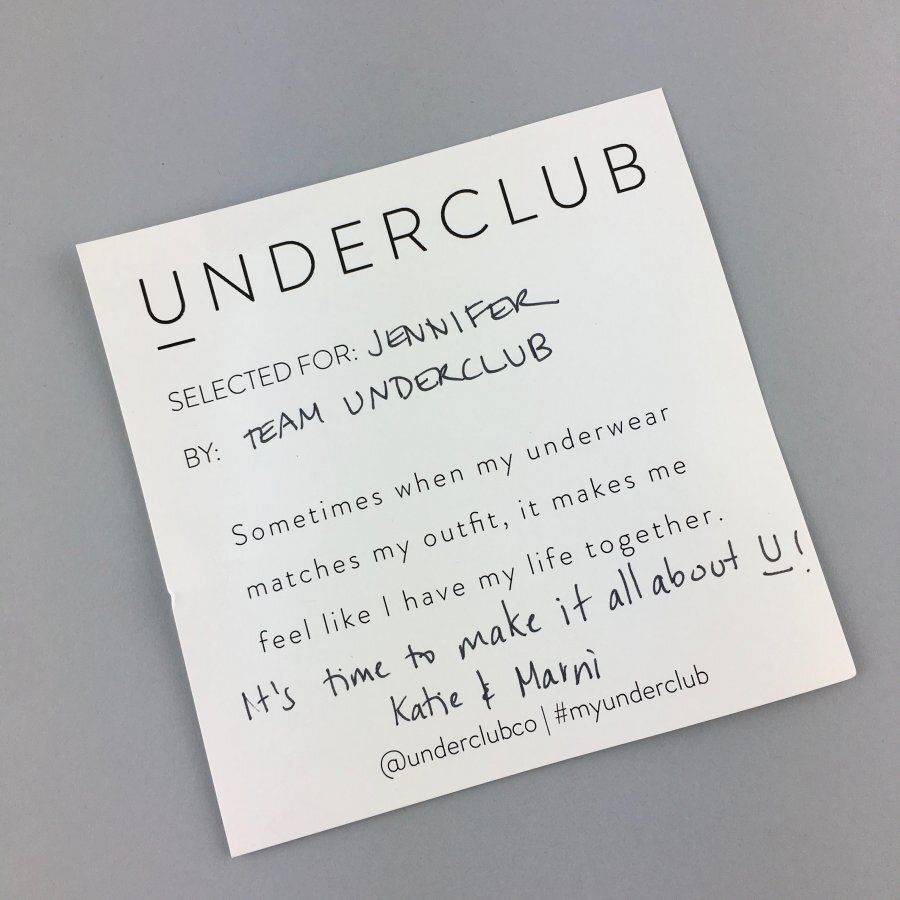 UNDERCLUB
SELECTED FOR: JENNIFER
BY: TEAM UNDERCLUB
Sometimes when my underwear
matches my outfit, it makes me
feel like I have my life together.
It's time to make it all about U!
Katie & Marni
@underclubco | #myunderclub